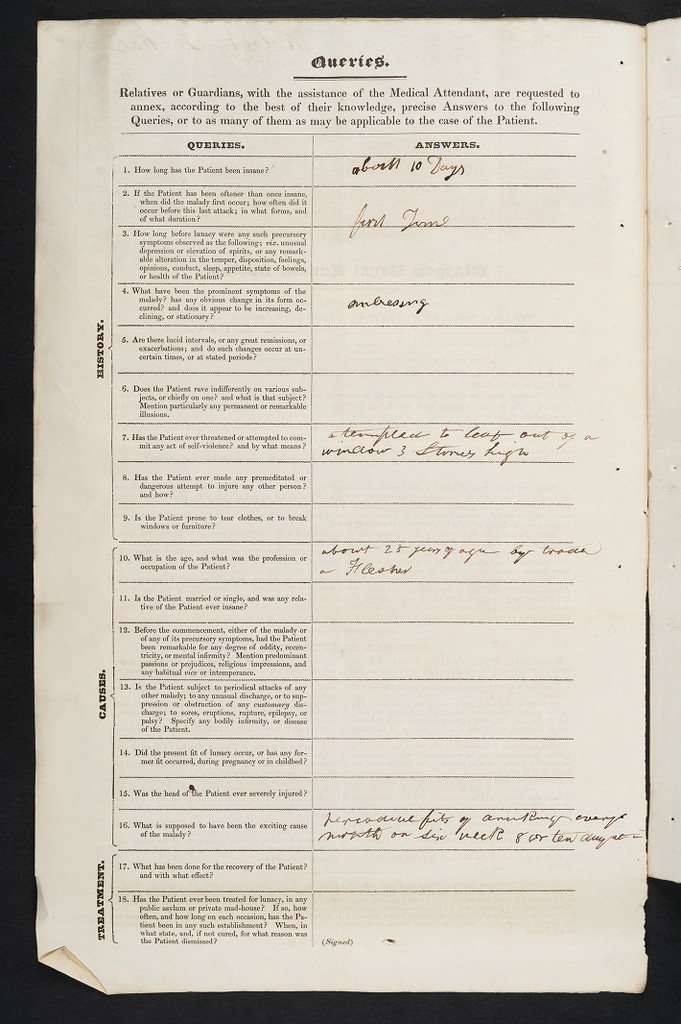 Queries.
Relatives or Guardians, with the assistance of the Medical Attendant, are requested to
annex, according to the best of their knowledge, precise Answers to the following
Queries, or to as many of them as may be applicable to the case of the Patient.
QUERIES.
ANSWERS.
HISTORY.
1. How long has the Patient been insane?
about 10 Days
2. If the Patient has been oftener than once insane,
when did the malady first occur; how often did it
occur before this last attack; in what forms, and
of what duration?
first Time
3. How long before lunacy were any such precursory
symptoms observed as the following; viz. unusual
depression or elevation of spirits, or any remark-
able alteration in the temper, disposition, feelings,
opinions, conduct, sleep, appetite, state of bowels,
or health of the Patient?
4. What have been the prominent symptoms of the
malady? has any obvious change in its form oc-
curred? and does it appear to be increasing, de-
clining, or stationary?
5. Are there lucid intervals, or any great remissions, or
exacerbations; and do such changes occur at un-
certain times, or at stated periods?
6. Does the Patient rave indifferently on various sub-
jects, or chiefly on one? and what is that subject?
Mention particularly any permanent or remarkable
illusions.
7. Has the Patient ever threatened or attempted to com-
mit any act of self-violence? and by what means?
attempted to leap out of a
window 3 Stories high
8. Has the Patient ever made any premeditated or
dangerous attempt to injure any other person?
and how?
9. Is the Patient prone to tear clothes, or to break
windows or furniture?
CAUSES.
10. What is the age, and what was the profession or
occupation of the Patient?
about 25 years of age by trade
a Flesher
11. Is the Patient married or single, and was any rela-
tive of the Patient ever insane?
12. Before the commencement, either of the malady or
of any of its precursory symptoms, had the Patient
been remarkable for any degree of oddity, eccen-
tricity, or mental infirmity? Mention predominant
passions or prejudices, religious impressions, and
any habitual vice or intemperance.
13. Is the Patient subject to periodical attacks of any
other malady; to any unusual discharge, or to sup-
pression or obstruction of any customary dis-
charge; to sores, eruptions, rupture, epilepsy, or
palsy? Specify any bodily infirmity, or disease
of the Patient.
14. Did the present fit of lunacy occur, or has any for-
mer fit occurred, during pregnancy or in childbed?
15. Was the head of the Patient ever severely injured?
16. What is supposed to have been the exciting cause
of the malady?
fits of drinking every
month or six week 8 or ten days at a
TREATMENT.
17. What has been done for the recovery of the Patient?
and with what effect?
18. Has the Patient ever been treated for lunacy, in any
public asylum or private mad-house? If so, how
often, and how long on each occasion, has the Pa-
tient been in any such establishment? When, in
what state, and, if not cured, for what reason was
the Patient dismissed?
(Signed)